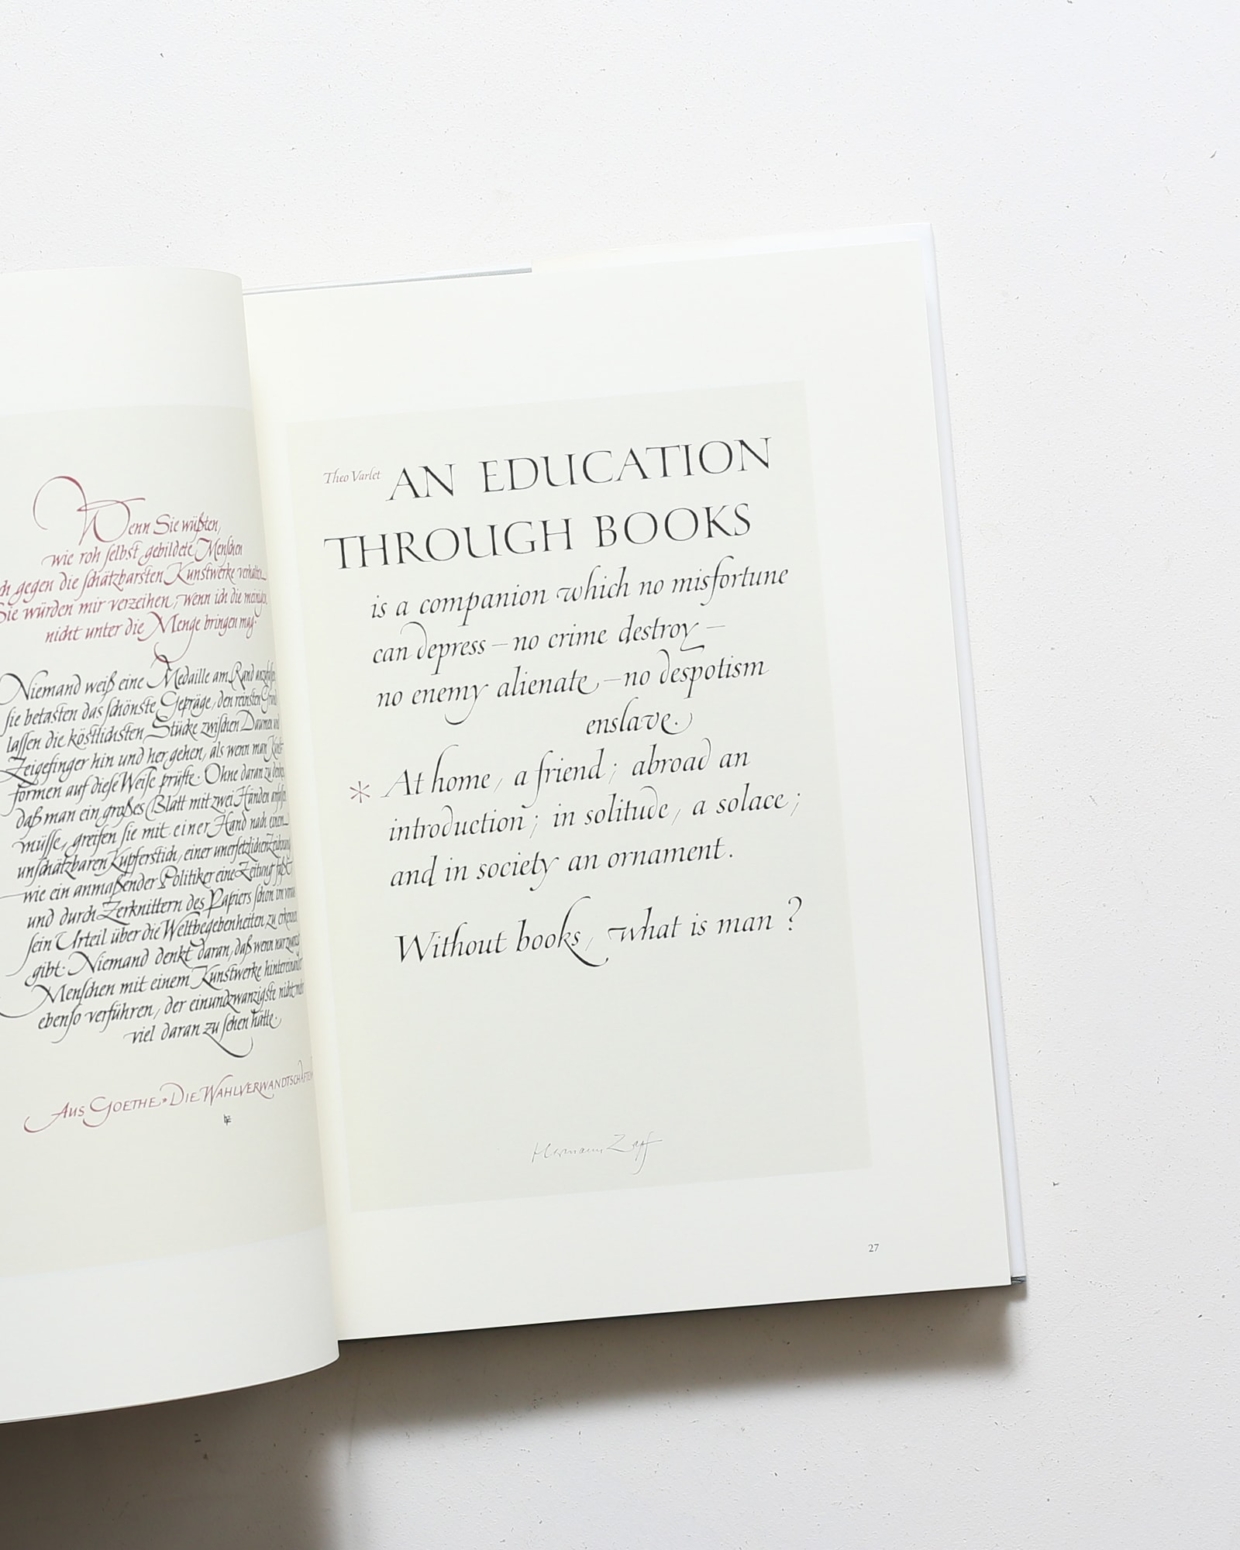 Wenn Sie wüßten,
wie roh selbst gebildete Menschen
gegen die schätzbarsten Kunstwerke
Sie würden mir verzeihen, wenn ich die meinigen
nicht unter die Menge bringen mag.
Niemand weiß eine Medaille am Rand
sie betasten das schönste Gepräge, den reinsten
lassen die köstlichsten Stücke zwischen Daumen und
Zeigefinger hin und her gehen, als wenn man
formen auf diese Weise prüfte. Ohne daran zu
daß man ein großes Blatt mit zwei Händen
müsse, greifen sie mit einer Hand nach
unschätzbaren Kupferstich, einer unersetzlichen
wie ein anmaßender Politiker eine Zeitung faßt
und durch Zerknittern des Papiers schon
sein Urteil über die Weltbegebenheiten zu
gibt. Niemand denkt daran, daß wenn nur zwanzig
Menschen mit einem Kunstwerke hintereinander
ebenso verführen, der einundzwanzigste nicht mehr
viel daran zu sehen hätte.
AUS GOETHE • DIE WAHLVERWANDTSCHAFTEN
Theo Varlet AN EDUCATION
THROUGH BOOKS
is a companion which no misfortune
can depress – no crime destroy –
no enemy alienate – no despotism
enslave.
* At home, a friend; abroad an
introduction; in solitude, a solace;
and in society an ornament.
Without books, what is man?
Hermann Zapf
27